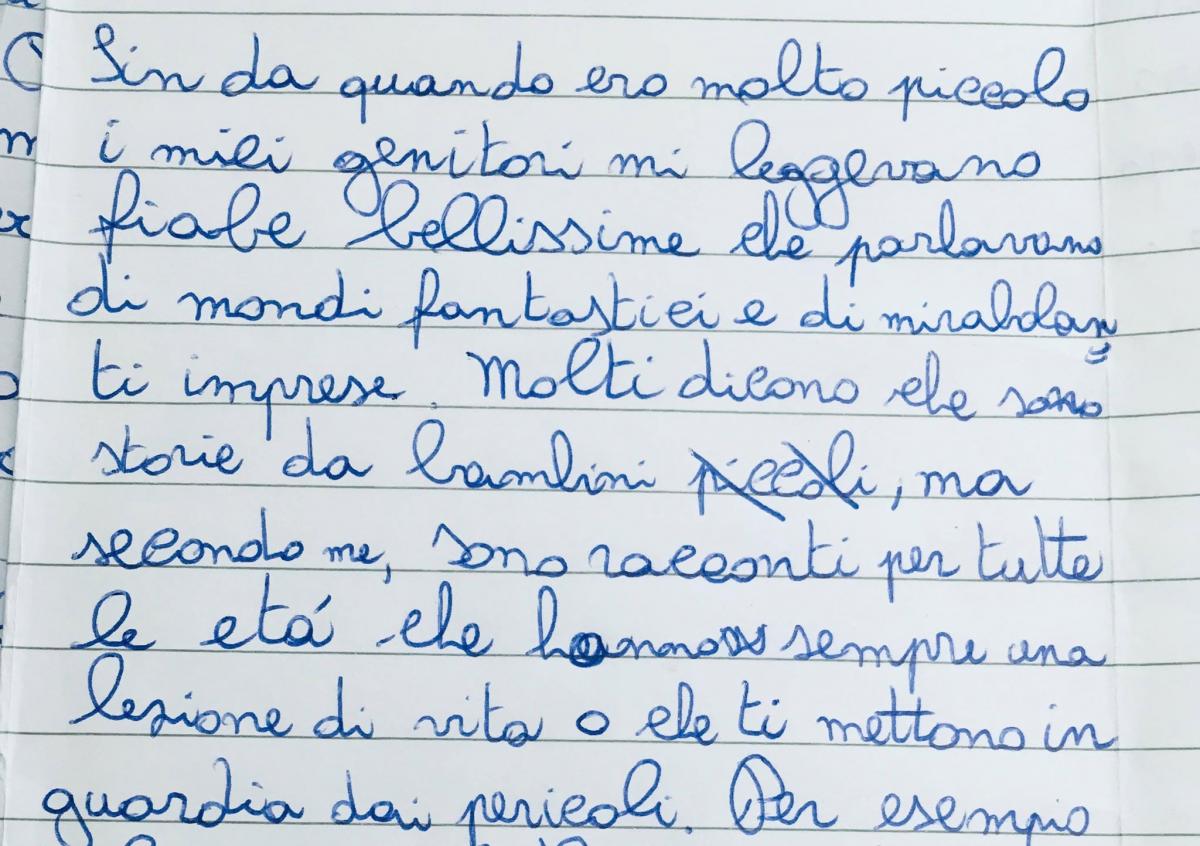 Sin da quando ero molto piccolo
i miei genitori mi leggevano
fiabe bellissime che parlavano
di mondi fantastici e di mirabolan=
ti imprese. Molti dicono che sono
storie da bambini piccoli, ma
secondo me, sono racconti per tutte
le etá che hanno sempre una
lezione di vita o che ti mettono in
guardia dai pericoli. Per esempio